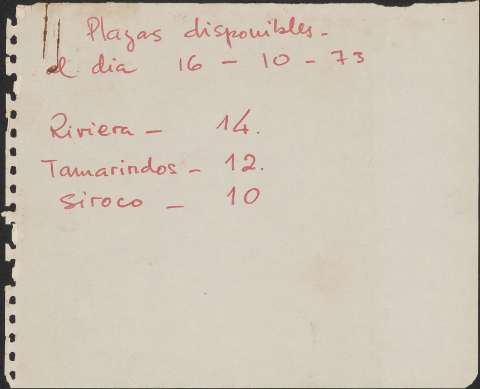 Plazas disponibles -
el dia 16 - 10 - 73
Riviera - 14.
Tamarindos - 12.
Siroco - 10